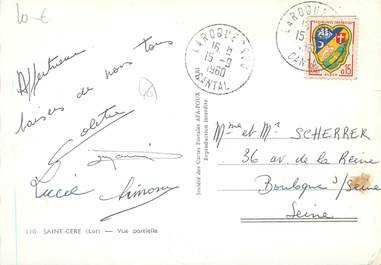 10 €
Affectueux
baisers de nous tous
Colette
Lucie Simone
110 SAINT-CERE (Lot) — Vue partielle
Société des Cartes Postales APA-POUX
Reproduction interdite
LAROQUEBROU
16 H
15 - 9
1960
CANTAL
LAROQUEBROU
15
CANTAL
0,15
Mme et Mr SCHERRER
36 av. de la Reine
Boulogne s/Seine
Seine